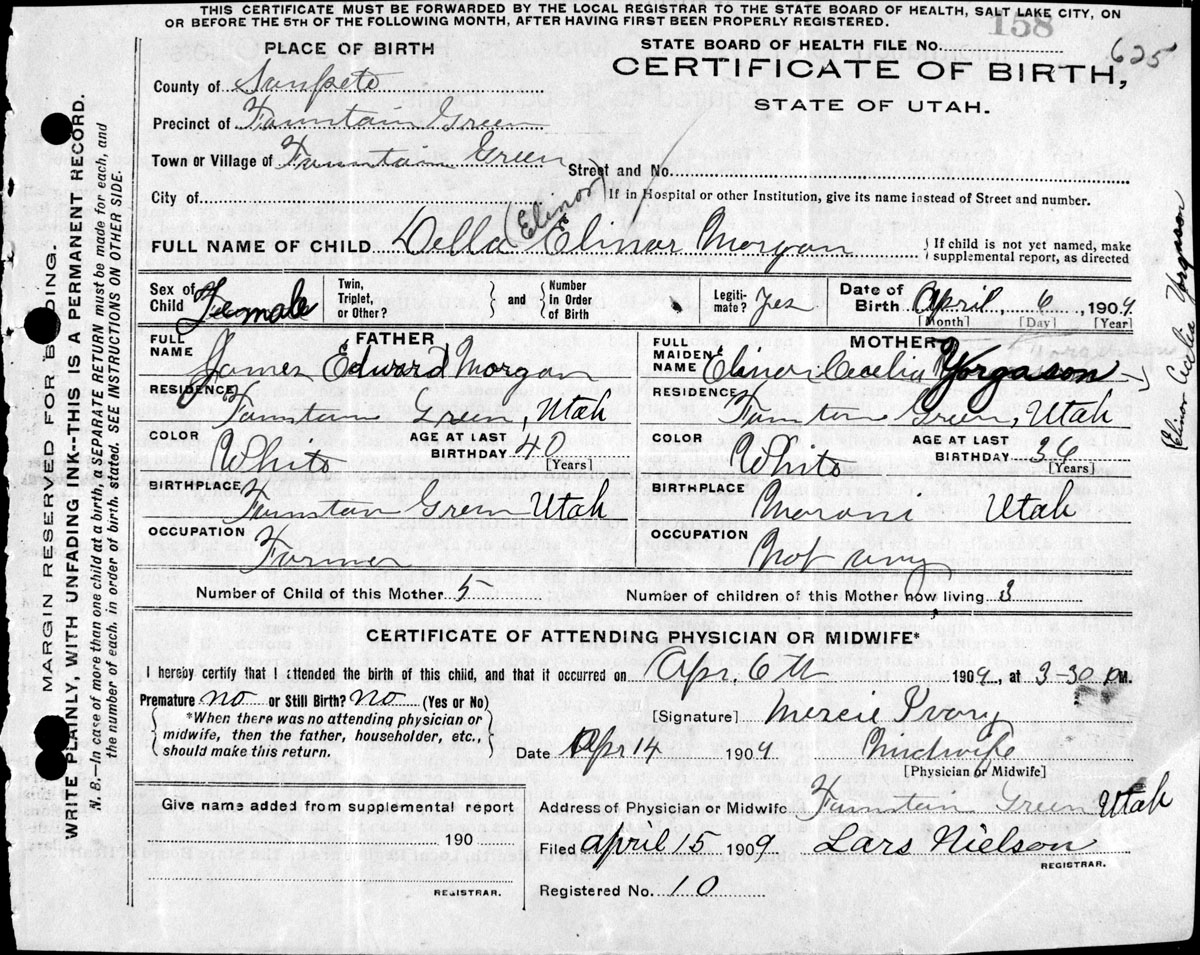 THIS CERTIFICATE MUST BE FORWARDED BY THE LOCAL REGISTRAR TO THE STATE BOARD OF HEALTH, SALT LAKE CITY, ON
OR BEFORE THE 5TH OF THE FOLLOWING MONTH, AFTER HAVING FIRST BEEN PROPERLY REGISTERED.
158
625
PLACE OF BIRTH
STATE BOARD OF HEALTH FILE No.
CERTIFICATE OF BIRTH,
STATE OF UTAH.
County of Sanpete
Precinct of Fountain Green
Town or Village of Fountain Green
Street and No.
City of
If in Hospital or other Institution, give its name instead of Street and number.
(Elinor)
FULL NAME OF CHILD Della Elinor Morgan
If child is not yet named, make supplemental report, as directed
Sex of Child Female
Twin, Triplet, or Other? and Number In Order of Birth
Legiti-mate? Yes
Date of Birth April 6, 1909
[Month] [Day] [Year]
FATHER
FULL NAME James Edward Morgan
RESIDENCE Fountain Green, Utah
COLOR White
AGE AT LAST BIRTHDAY 40
[Years]
BIRTHPLACE Fountain Green Utah
OCCUPATION Farmer
MOTHER
FULL MAIDEN NAME Elinor Cecelia Yorgason
RESIDENCE Fountain Green, Utah
COLOR White
AGE AT LAST BIRTHDAY 36
[Years]
BIRTHPLACE Moroni Utah
OCCUPATION Not any
Elinor Cecelia Yorgason
Number of Child of this Mother 5
Number of children of this Mother now living 3
CERTIFICATE OF ATTENDING PHYSICIAN OR MIDWIFE*
I hereby certify that I attended the birth of this child, and that it occurred on Apr. 6th 1909, at 3-30 P.M.
Premature no or Still Birth? no (Yes or No)
*When there was no attending physician or
midwife, then the father, householder, etc.,
should make this return.
[Signature] Mercie Ivory
Date Apr 14 1909 Midwife
[Physician or Midwife]
Give name added from supplemental report
190
REGISTRAR.
Address of Physician or Midwife Fountain Green Utah
Filed April 15 1909 Lars Nielson
REGISTRAR.
Registered No. 10
MARGIN RESERVED FOR BINDING.
WRITE PLAINLY, WITH UNFADING INK--THIS IS A PERMANENT RECORD.
N. B.—In case of more than one child at a birth, a SEPARATE RETURN must be made for each, and
the number of each, in order of birth, stated. SEE INSTRUCTIONS ON OTHER SIDE.